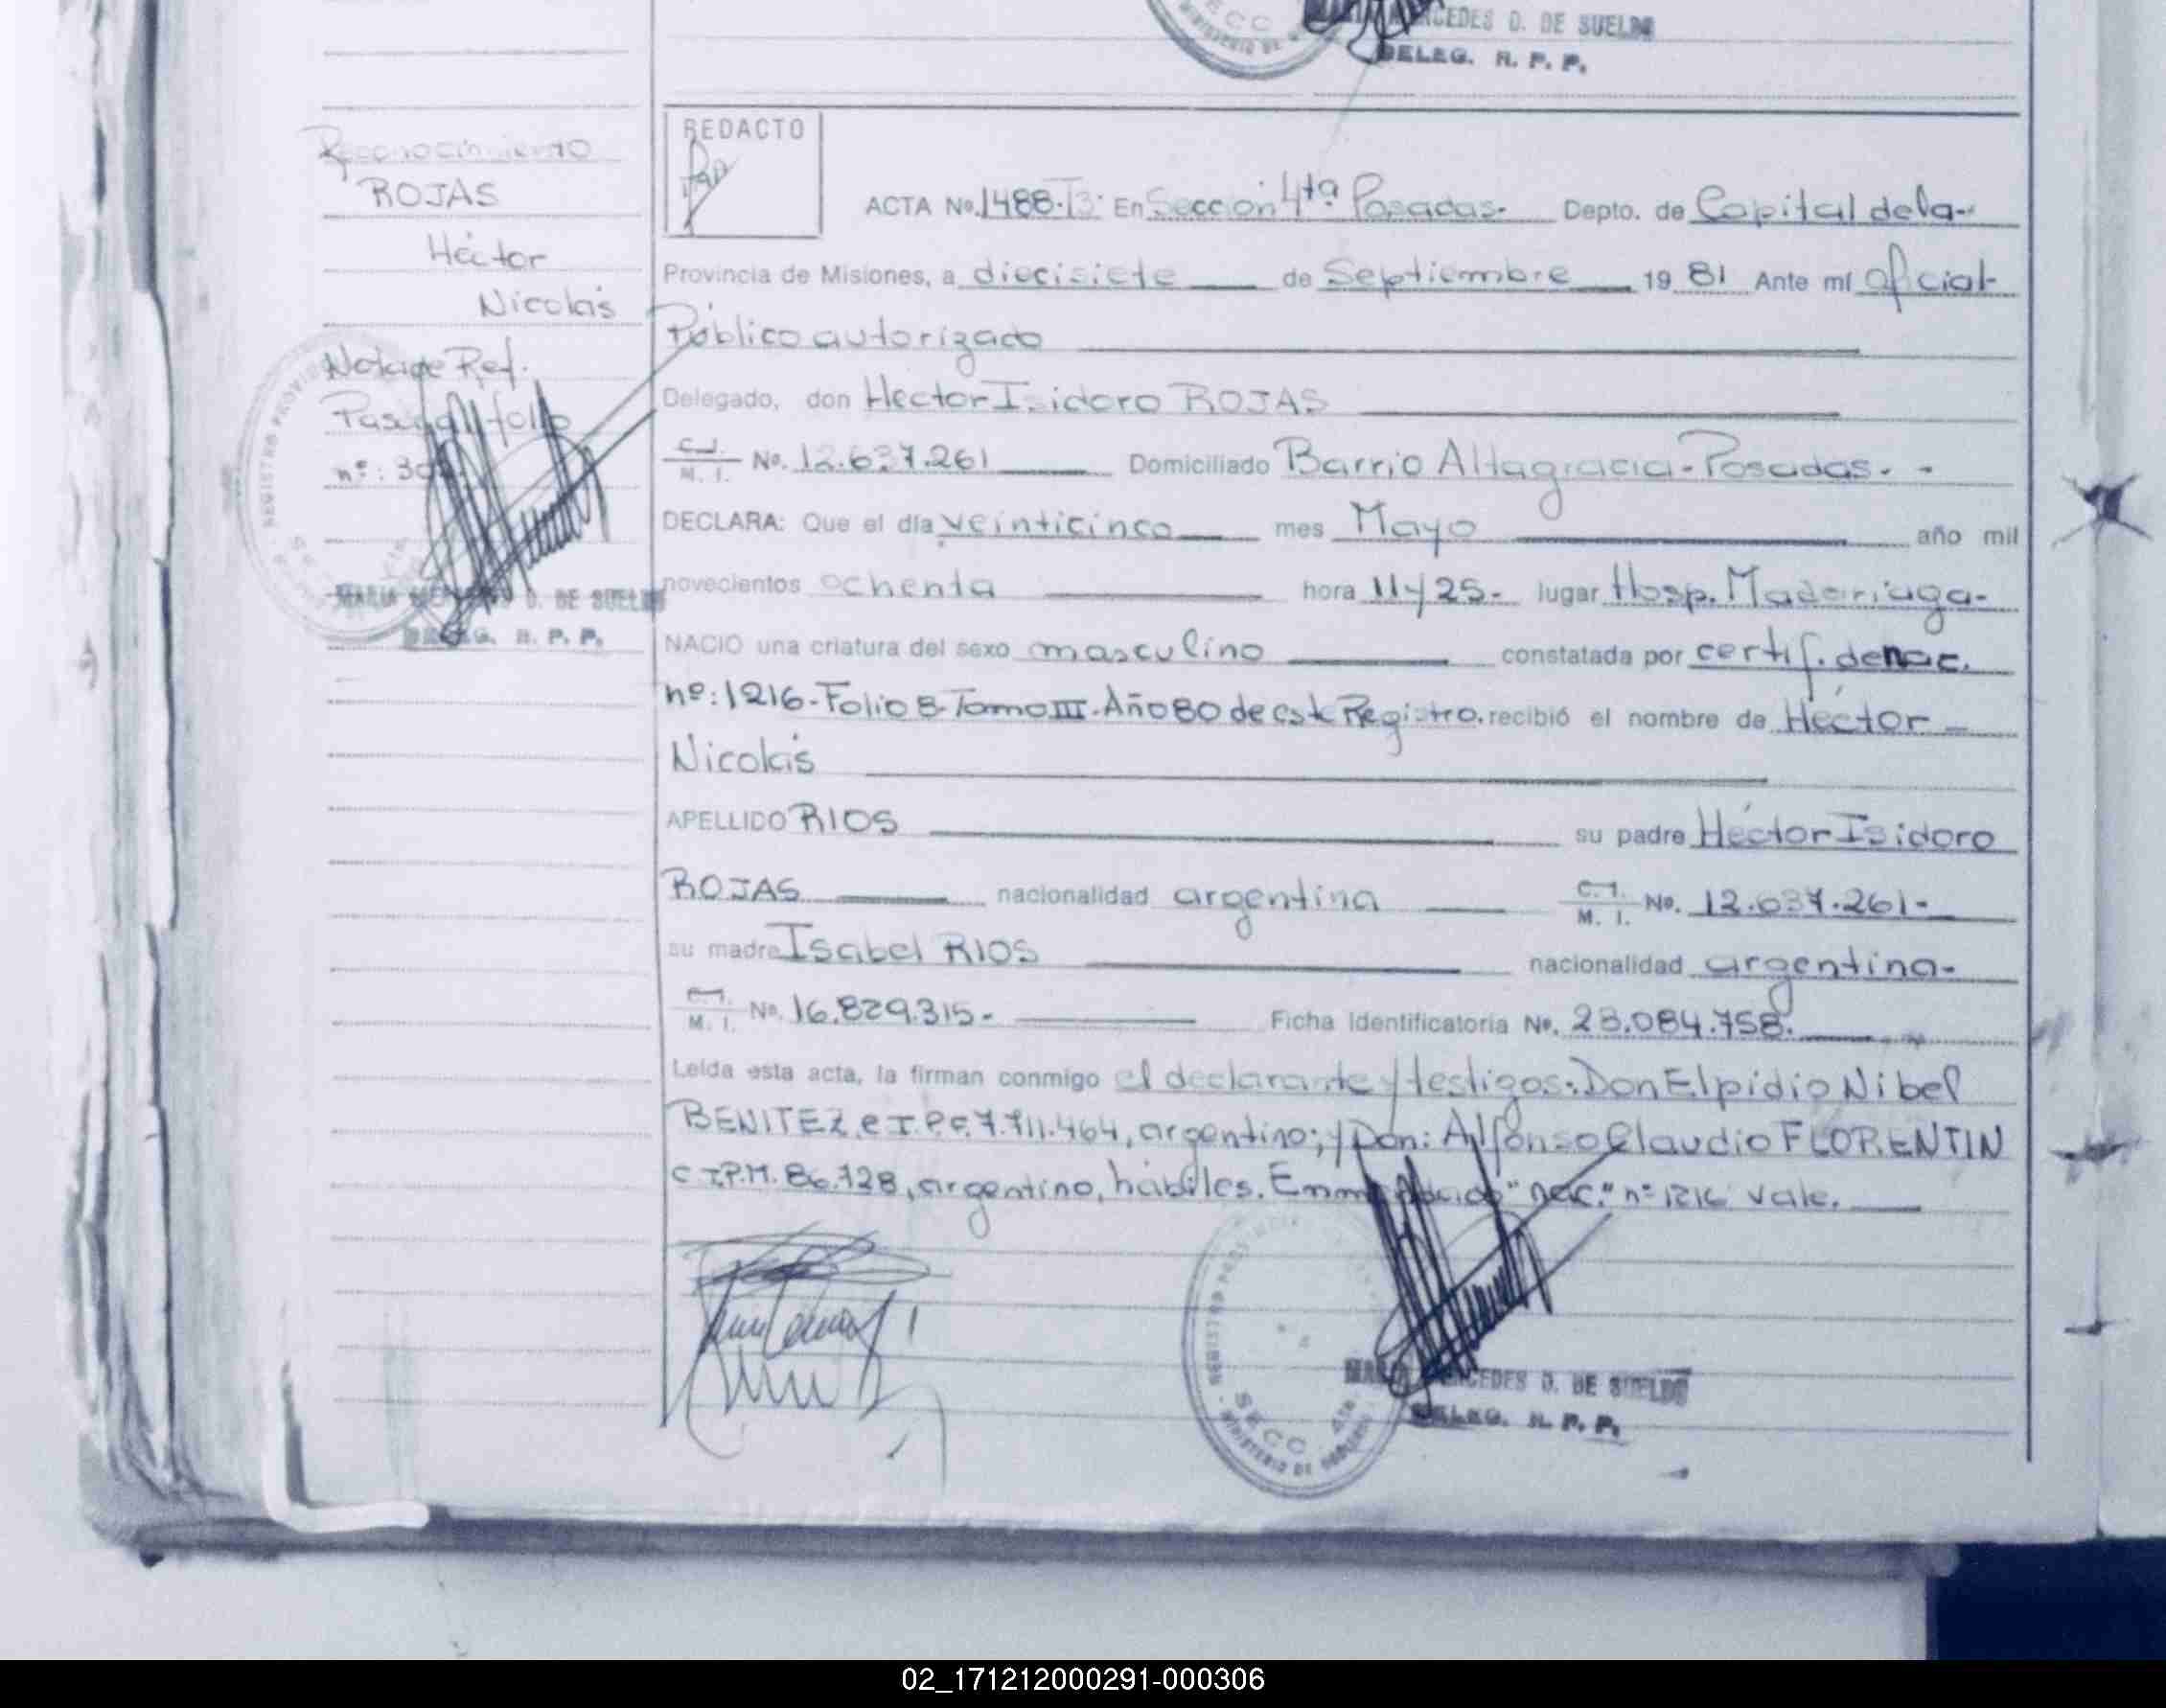 CEDES D. DE SUELDO
DELEG. R. P. P.
REDACTO
Reconocimiento
ROJAS
Héctor
Nicolás
Nota de Ref.
Pasa al folio
nº: 30
MARIA MERCEDES D. DE SUELDO
DELEG. R. P. P.
ACTA No. 1488-T3- En Sección 4ta Posadas- Depto. de Capital de la-
Provincia de Misiones, a diecisiete de Septiembre 19 81 Ante mí oficial-
Público autorizado
Delegado, don Hector Isidoro ROJAS
C.I. M. I. No. 12.637.261 Domiciliado Barrio Altagracia-Posadas. -
DECLARA: Que el día veinticinco mes Mayo año mil
novecientos ochenta hora 11 y 25- lugar Hosp. Madariaga-
NACIO una criatura del sexo masculino constatada por certif. de nac.
nº: 1216-Folio 8-Tomo III-Año 80 de este Registro. recibió el nombre de Héctor -
Nicolás
APELLIDO RIOS su padre Héctor Isidoro
ROJAS nacionalidad argentina C.I. M. I. No. 12.637.261-
su madre Isabel RIOS nacionalidad argentina-
C.I. M. I. No. 16.829.315- Ficha Identificatoria No. 28.084.758.
Leída esta acta, la firman conmigo el declarante y testigos: Don Elpidio Nibel
BENITEZ, C.I.P.F. 7.711.464, argentino; y Don: Alfonso Claudio FLORENTIN
C.I.P.M. 86.728, argentino, hábiles. Enmendado "nac." nº 1216 vale.
REGISTRO PROV
SECC 4ta
MINISTERIO DE GOBIERNO
MARIA MERCEDES D. DE SUELDO
DELEG. R. P. P.
02_171212000291-000306